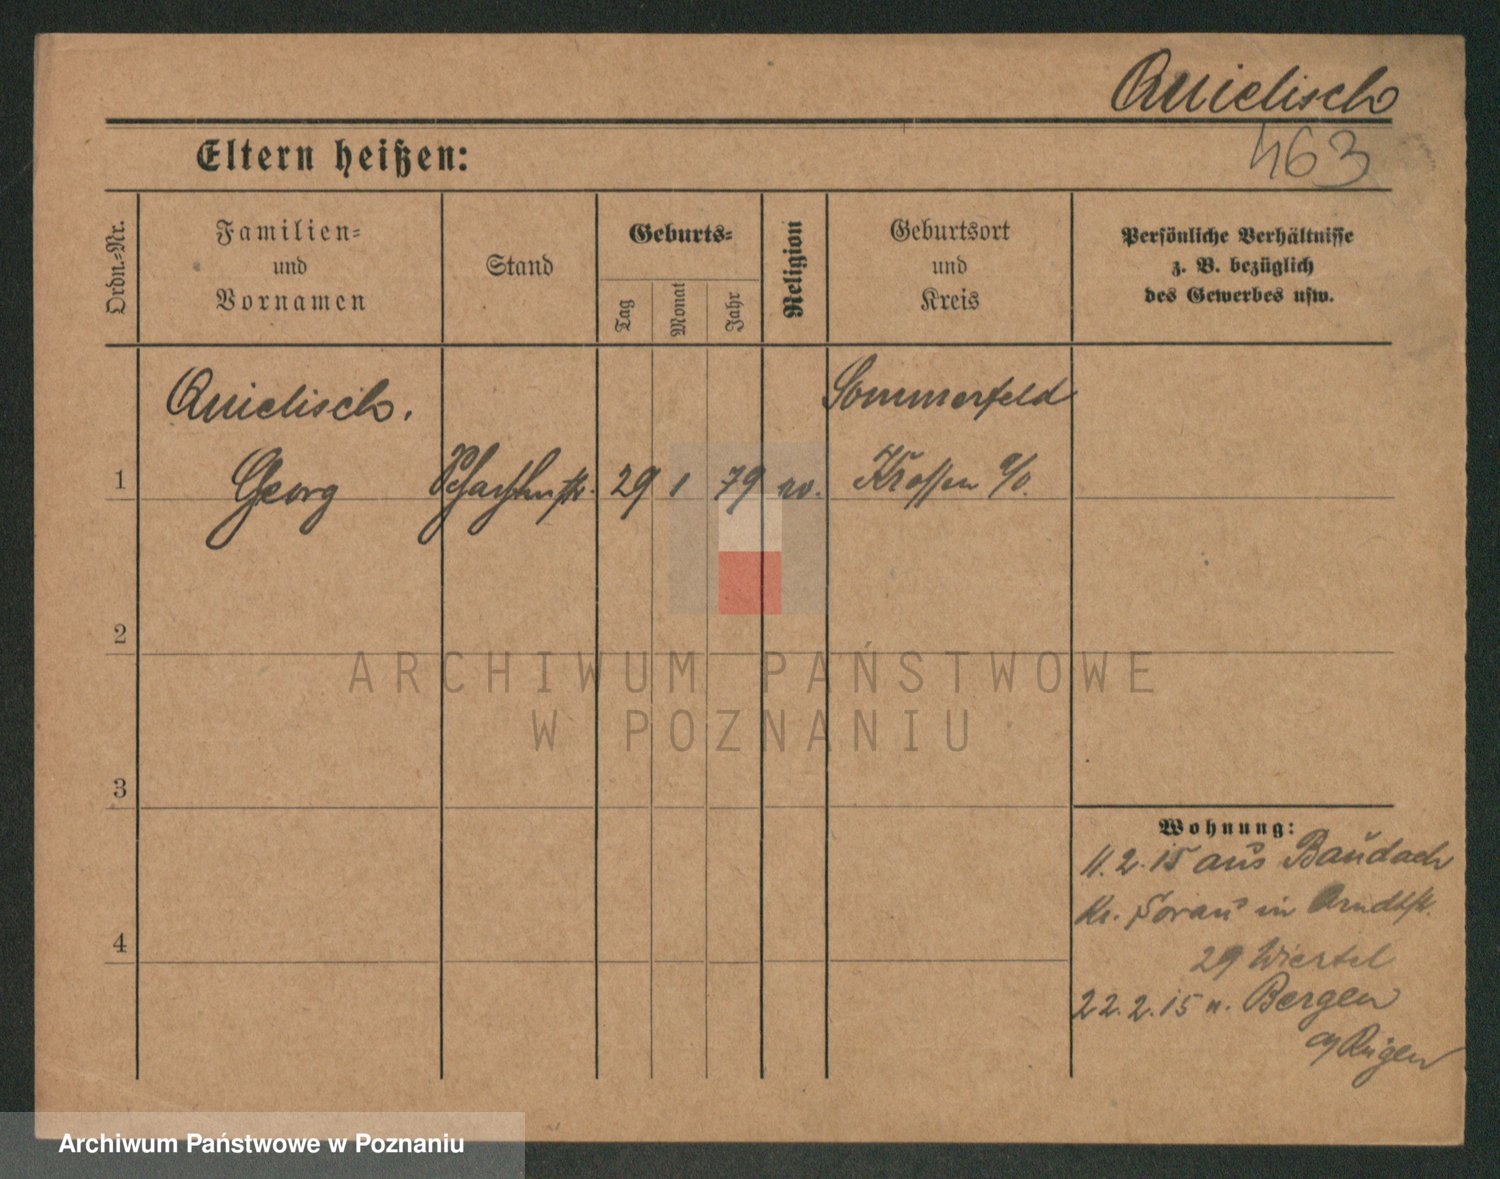 Quielisch
463
Eltern heißen:
Ordn.=Nr.
Familien=
und
Vornamen
Stand
Geburts=
Tag
Monat
Jahr
Religion
Geburtsort
und
Kreis
Persönliche Verhältnisse
z. B. bezüglich
des Gewerbes usw.
Quielisch.
Sommerfeld
1
Georg
29
1
79
Krossen a/O.
2
3
4
Wohnung:
11.2.15 aus Baudach
Kr. Sorau in Arndtstr.
29 Wiertel
22.2.15 n. Bergen
a/Rügen
ARCHIWUM PAŃSTWOWE
W POZNANIU
Archiwum Państwowe w Poznaniu